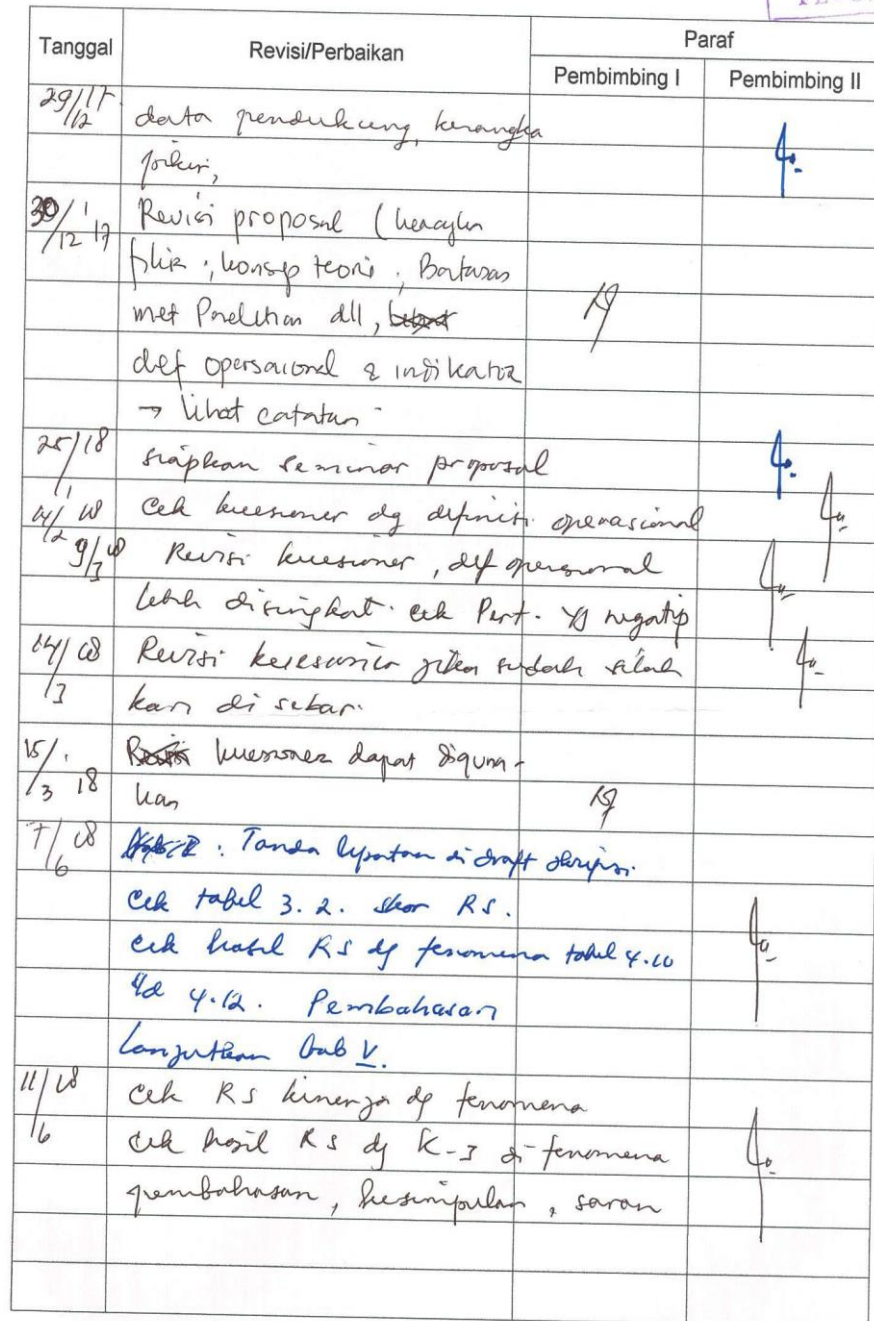 Tanggal Revisi/Perbaikan Paraf
Pembimbing I Pembimbing II
29/12 17 data pendukung, kerangka
pikir,
30/12 17 Revisi proposal (kerangka
pikir, konsep teori, Batasan
met Penelitian dll,
def opersaional & indikator
→ lihat catatan
25/1 18 siapkan seminar proposal
14/2 18 cek kuesioner dg definisi operasional
9/3 18 Revisi kuesioner, def operasional
lebih disingkat. cek Pert. yg negatip
14/3 18 Revisi kuesioner jika sudah silah
kan di sebar.
15/3 18 kuesioner dapat diguna-
kan
7/6 18 : Tanda lipatan di draft skripsi.
Cek tabel 3.2. skor RS.
cek hasil RS dg fenomena tabel 4.10
s/d 4.12. Pembahasan
Lanjutkan bab V.
11/6 18 cek RS kinerja dg fenomena
cek hasil RS dg K-3 di fenomena
pembahasan, kesimpulan, saran